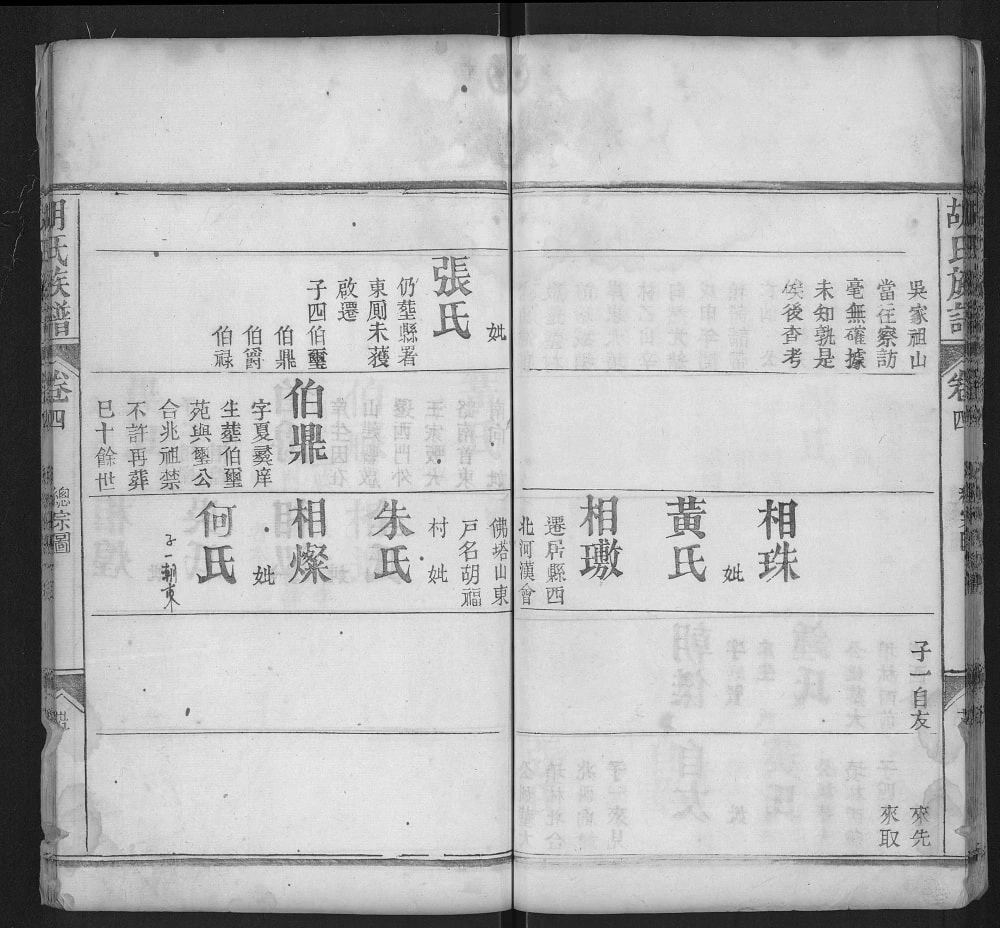 胡氏族譜
卷四
吳家祖山
當往察訪
毫無確據
未知孰是
俟後查考
妣
張氏
仍塟縣署
東厠未獲
啟遷
子四伯璽
伯鼎
伯爵
伯禄
伯鼎
字夏彛庠
生塟伯璽
苑與璽公
合兆祖禁
不許再葬
巳十餘世
相珠
妣
黃氏
相璷
遷居縣西
北河漢會
佛塔山東
戸名胡福
村
妣
朱氏
相燦
妣
何氏
子一朝東
子一自友
來先
來取
胡氏族譜
卷四
總宗圖